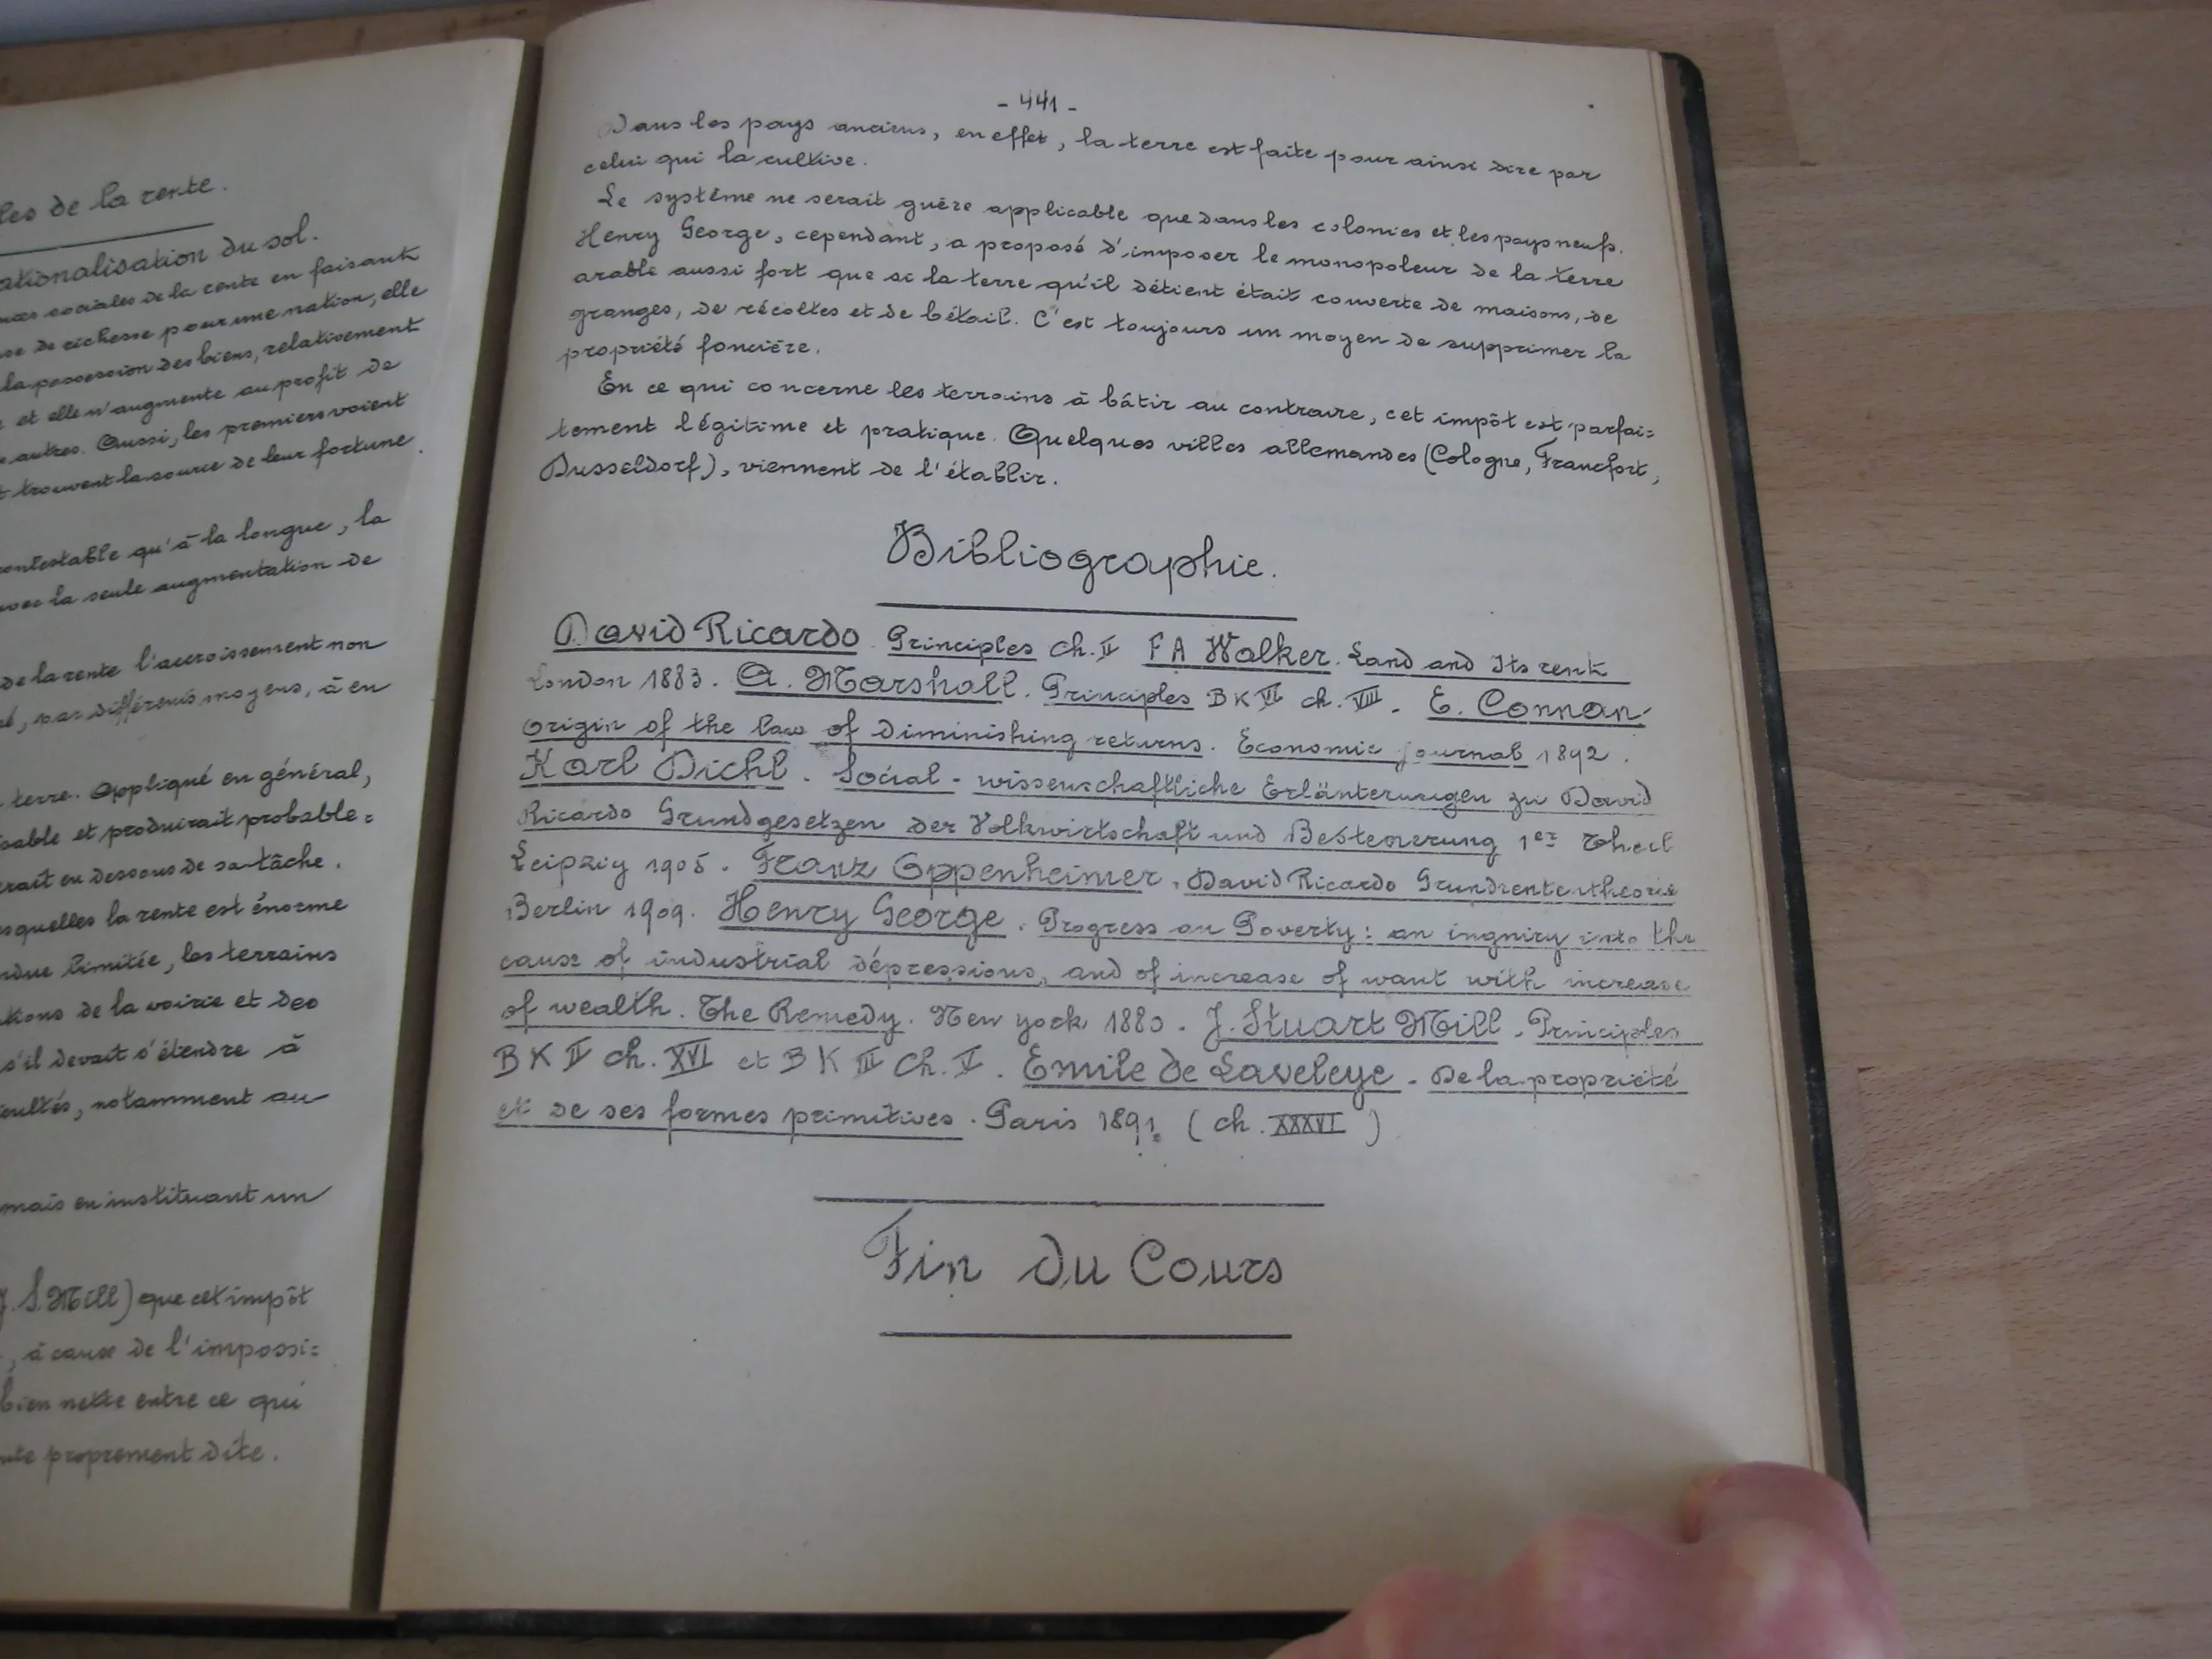 les de la rente.
nationalisation du sol.
sociales de la rente en faisant
de richesse pour une nation, elle
la possession des biens, relativement
et elle n'augmente au profit de
autres. Aussi, les premiers voient
trouvent la source de leur fortune
contestable qu'à la longue, la
avec la seule augmentation de
de la rente l'accroissement non
par différents moyens, à en
terre. Appliqué en général,
sable et produirait probable=
rait en dessous de sa tâche.
squelles la rente est énorme
ndue limitée, les terrains
tions de la voirie et des
s'il devait s'étendre à
cultés, notamment au
mais en instituant un
J. S. Mill) que cet impôt
, à cause de l'impossi=
bien nette entre ce qui
nte proprement dite.
- 441 -
Dans les pays anciens, en effet, la terre est faite pour ainsi dire par
celui qui la cultive.
Le système ne serait guère applicable que dans les colonies et les pays neufs.
Henry George, cependant, a proposé d'imposer le monopoleur de la terre
arable aussi fort que si la terre qu'il détient était couverte de maisons, de
granges, de récoltes et de bétail. C'est toujours un moyen de supprimer la
propriété foncière.
En ce qui concerne les terrains à bâtir au contraire, cet impôt est parfai=
tement légitime et pratique. Quelques villes allemandes (Cologne, Francfort,
Dusseldorf), viennent de l'établir.
Bibliographie.
David Ricardo. Principles ch. II F A Walker. Land and Its rent
London 1883. A. Marshall. Principles BK VI ch. VIII. E. Connan
Origin of the law of diminishing returns. Economic journal 1892.
Karl Diehl. Social - wissenschaftliche Erlänterungen zu David
Ricardo Grundgesetzen der Volkwirtschaft und Besteuerung 1er Theil
Leipzig 1905. Franz Oppenheimer. David Ricardo Grundrententheorie
Berlin 1909. Henry George. Progress on Poverty: an ingniry into the
cause of industrial dépressions, and of increase of want with increase
of wealth. The Remedy. New york 1880. J. Stuart Mill. Principles
BK II ch. XVI et BK III Ch. V. Emile de Laveleye. De la propriété
et de ses formes primitives. Paris 1891. (ch. XXXVI)
Fin du Cours